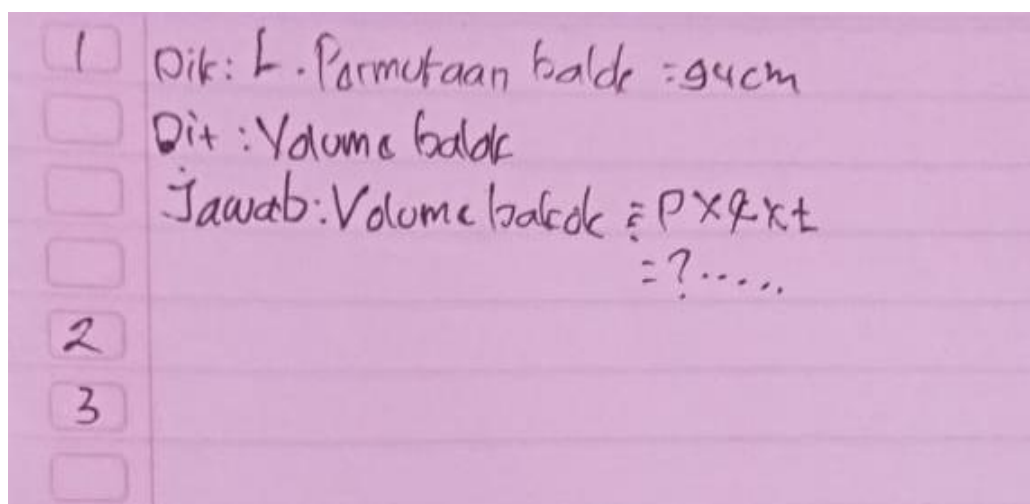 1 Dik: L. Permukaan balok = 94cm
Dit: Volume balok
Jawab: Volume balok = p x l x t
= ? .....
2
3